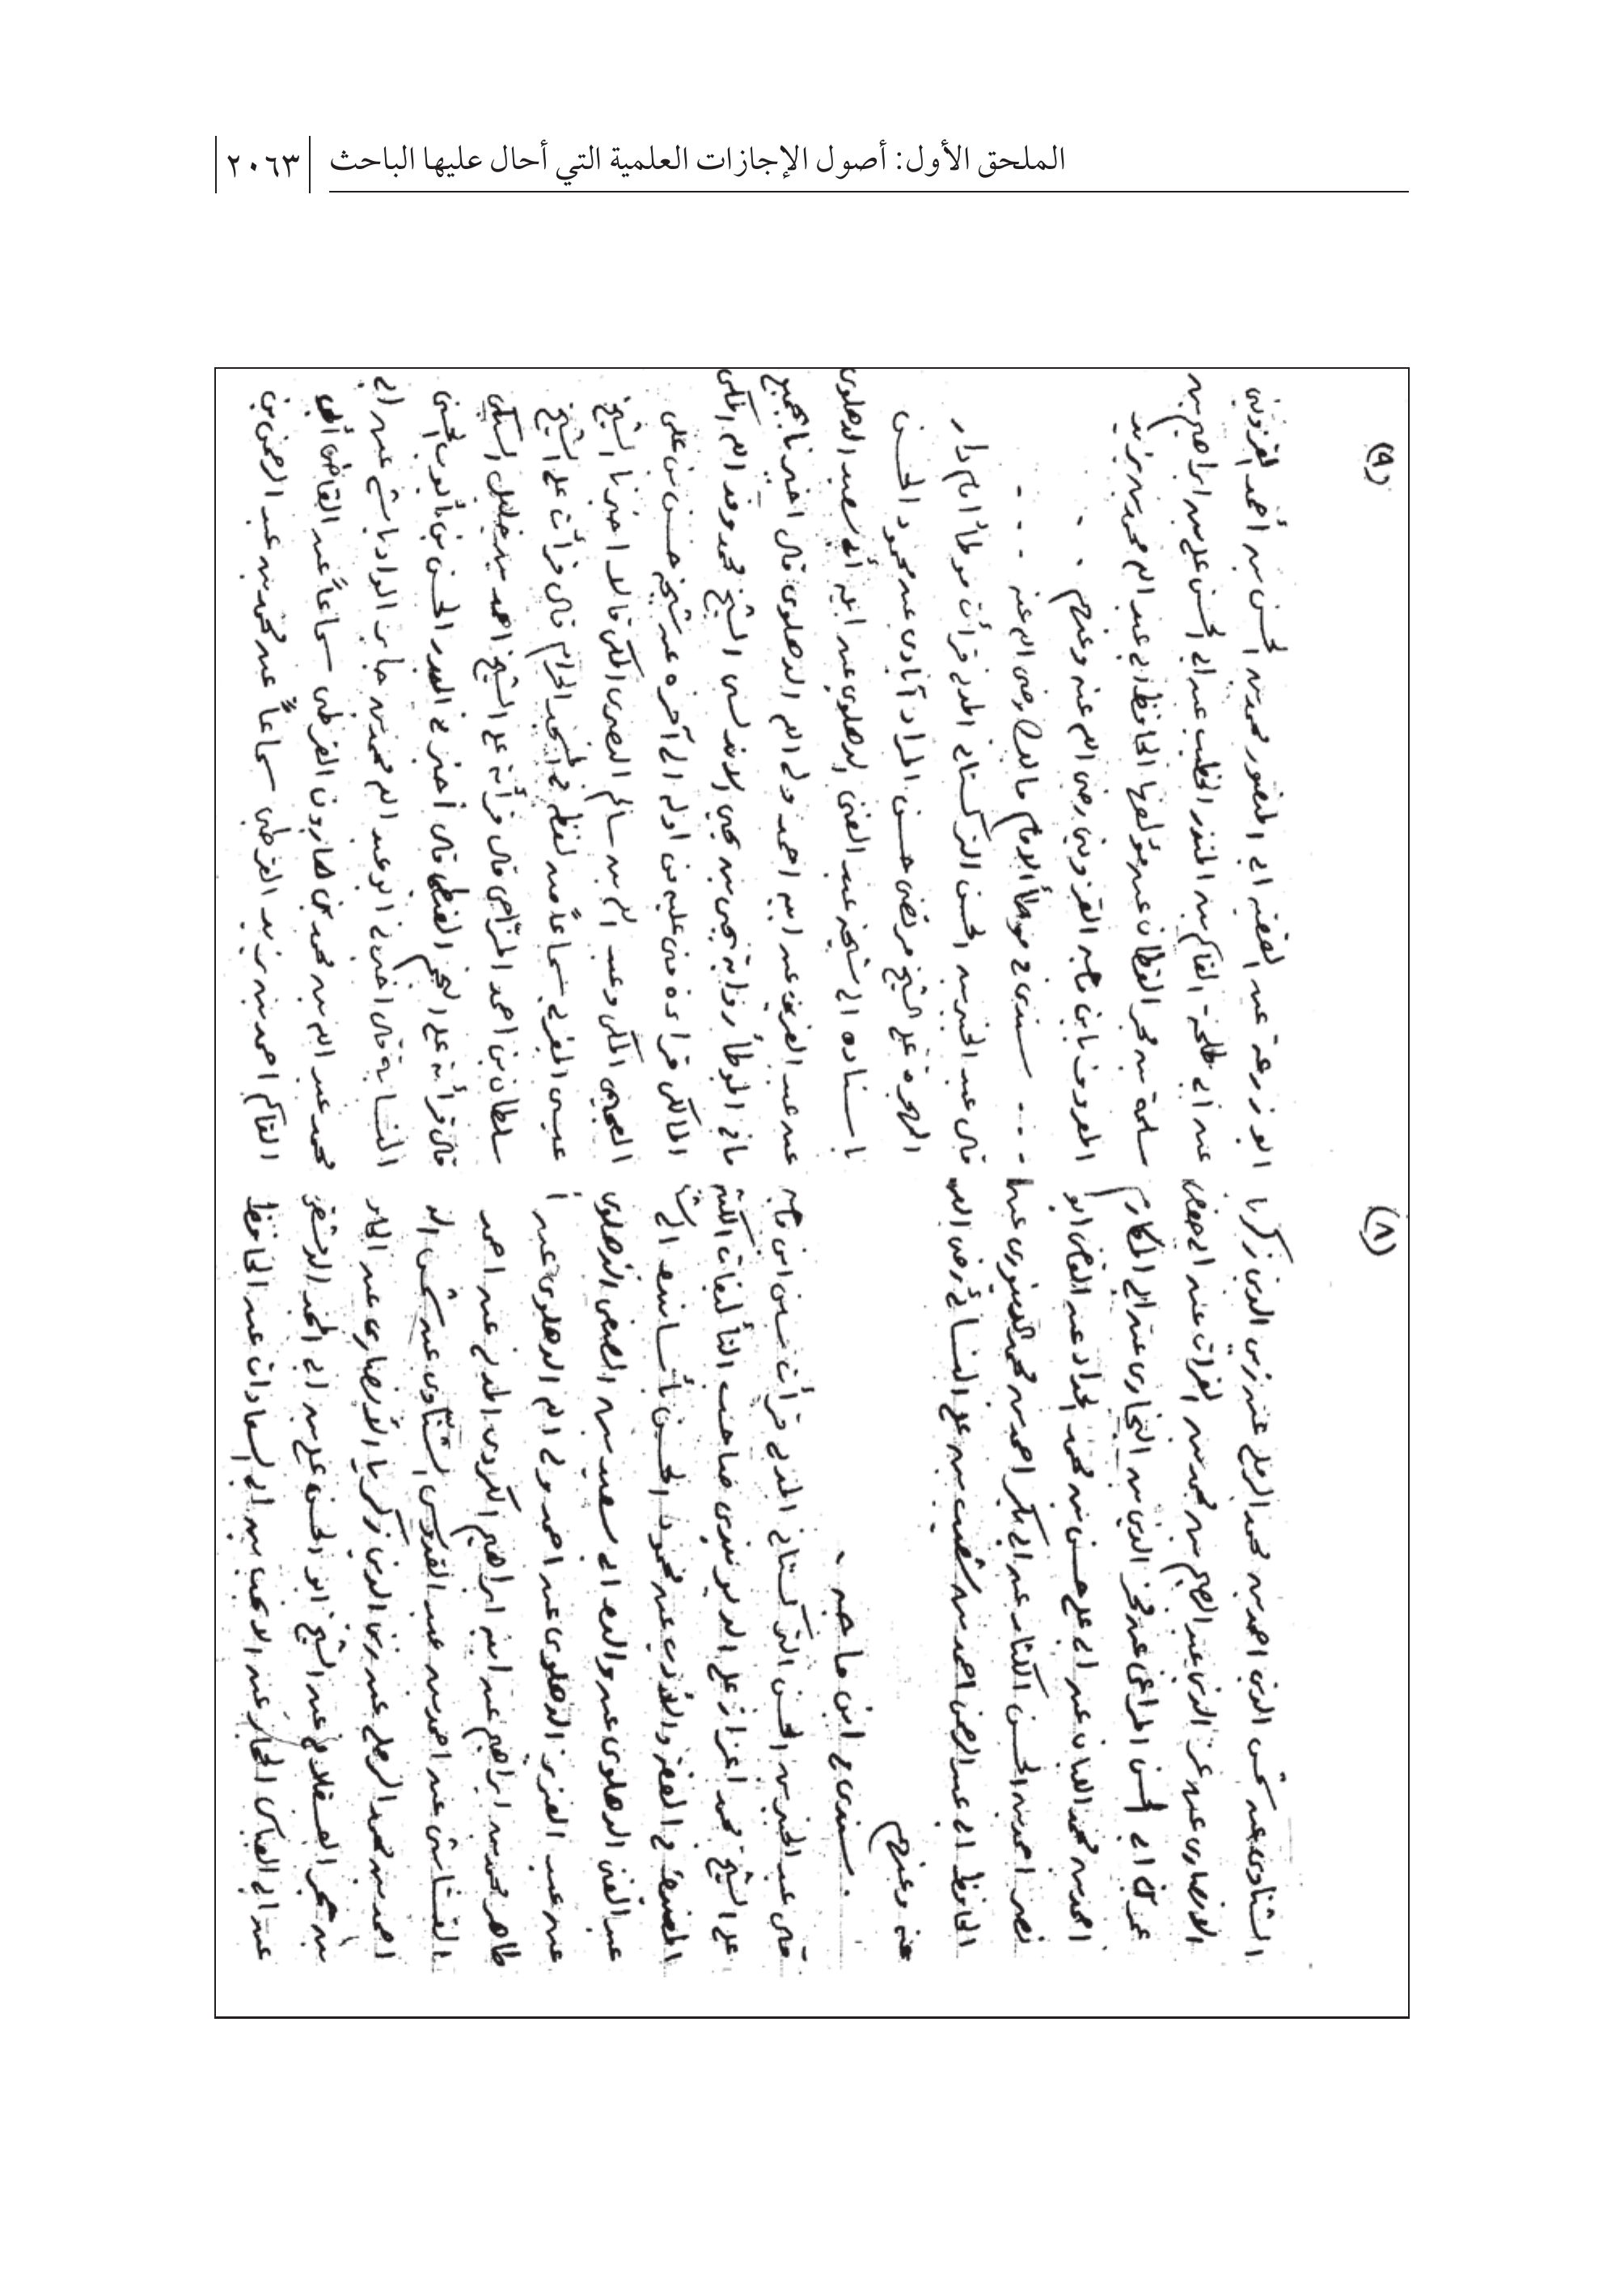 الملحق الأول: أصول الإجازات العلمية التي أحال عليها الباحث ٢٠٦٣
(٨)
الشناوى عن شمس الدين احمد بن محمد الرملى عن زين الدين زكريا
الانصارى عن عز الدين عبد الرحيم بن محمد بن الفرات عن ابى حفص
عمر بن ابى الحسن المراغى عن فخر الدين بن البخارى عن ابى المكارم
احمد بن محمد اللبان عن ابى على حسن بن محمد الحداد عن القاضى ابو
نصر احمد بن الحسن الكسار عن ابى بكر احمد بن محمد الدينورى عن
الحافظ ابى عبد الرحمن احمد بن شعيب بن على النسائى رضى الله
عنه وعنهم
سندى فى ابن ماجه
قال عبد الخبير بن الحسن التركستانى المدنى قرأت سنن ابن ماجه
على الشيخ محمد اعزاز على الديوبندى صاحب التأليفات
المصنفة فى الفقه والأدب عن محمود الحسن بأسانيده الى
عبد الغنى الدهلوى عن والده ابى سعيد بن الصفى الدهلوى
عن عبد العزيز الدهلوى عن احمد ولى الله الدهلوى عن أ
طاهر محمد بن ابراهيم عن ابيه ابراهيم الكردى المدنى عن احمد
القشاشى عن احمد بن عبد القدوس الشناوى عن شمس الد
احمد بن محمد الرملى عن زين الدين زكريا الأنصارى عن
بن حجر العسقلانى عن الشيخ ابو الحسن على بن ابى المجد الدمشقى
عن ابى العباس الحجار عن الانجب بن ابى السعادات عن الحافظ
(٩)
ابو زرعة عن الفقيه ابى المنصور محمد بن الحسن بن أحمد القزوينى
عن ابى طلحة القاسم بن المنذر الخطيب عن ابى الحسن على بن ابراهيم بن
سلمة بن بحر القطان عن مؤلفها الحافظ ابى عبد الله محمد بن يزيد
المعروف بابن ماجه القزوينى رضى الله عنه وعنهم
--- سندى فى موطأ الامام مالك رضى الله عنه ---
قال عبد الخبير بن الحسن التركستانى المدنى قرأت موطأ امام دار
الهجرة على الشيخ مرتضى حسن المراد آبادى عن محمود الحسن
باسناده الى شيخه عبد الغنى الدهلوى عن ابيه أبى سعيد الدهلوى
عن عبد العزيز عن ابيه احمد ولى الله الدهلوى قال اخبرنا بجميع
مافى الموطأ رواية يحيى بن يحيى الاندلسى الشيخ محمد وفد الله المكى
المالكى قراءة منى عليه من اوله الى آخره عن شيخه حسن بن على
العجيمى المكى وعبد الله بن سالم البصرى المكى قالا اخبرنا الشيخ
عيسى المغربى سماعاً من لفظه فى المسجد الحرام قال قرأت على الشيخ
سلطان بن احمد المزّاحى قال قرأته على الشيخ احمد بن خليل السبكى
قال قرأته على النجم الغيطى قال أخبرنى البدر الحسن بن أيوب الحسنى
النسابة قال اخبرنى ابو عبد الله محمد بن جابر الوادياشى عن ابى
محمد عبد الله بن محمد بن هارون القرطبى سماعاً عن القاضى أبى
القاسم احمد بن يزيد القرطبى سماعاً عن محمد بن عبد الرحمن بن